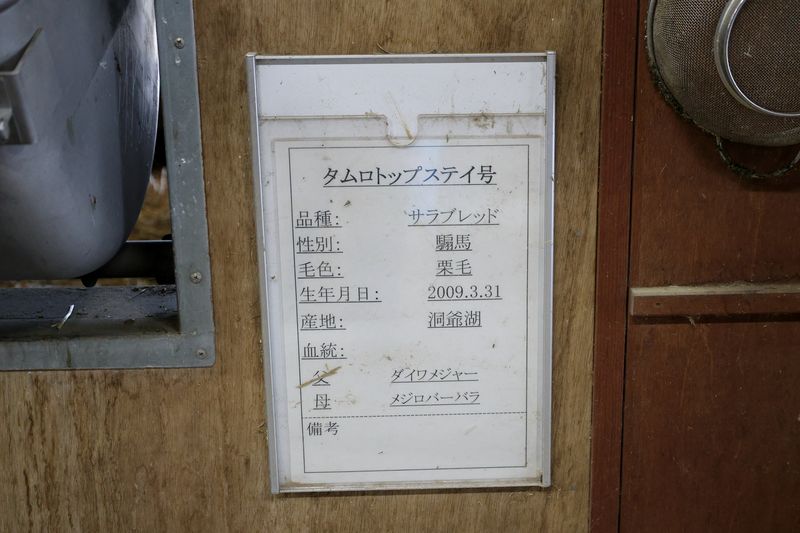 タムロトップステイ号
品種: サラブレッド
性別: 騸馬
毛色: 栗毛
生年月日: 2009.3.31
産地: 洞爺湖
血統:
父 ダイワメジャー
母 メジロバーバラ
備考